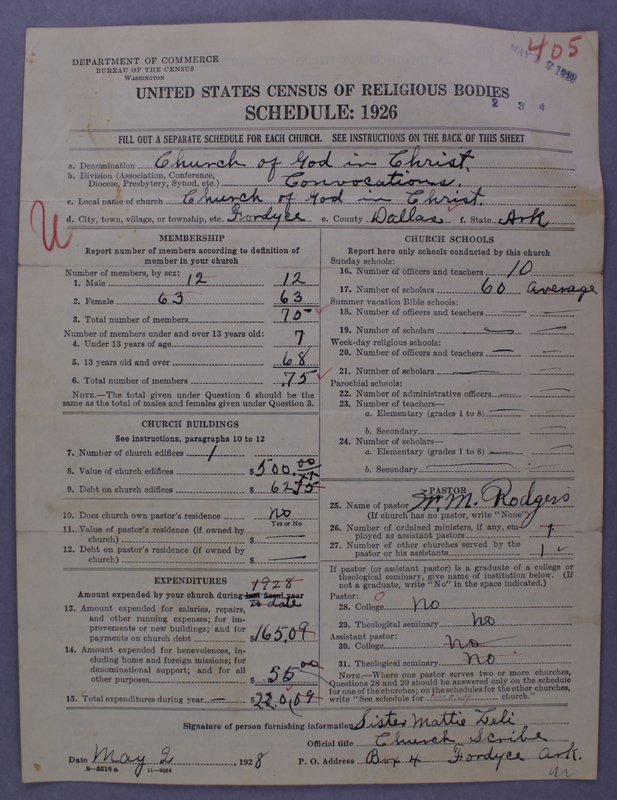 405
MAY 2 1928
DEPARTMENT OF COMMERCE
BUREAU OF THE CENSUS
WASHINGTON
UNITED STATES CENSUS OF RELIGIOUS BODIES
2 3 4
SCHEDULE: 1926
FILL OUT A SEPARATE SCHEDULE FOR EACH CHURCH. SEE INSTRUCTIONS ON THE BACK OF THIS SHEET
a. Denomination Church of God in Christ.
b. Division (Association, Conference, Diocese, Presbytery, Synod, etc.) Convocations.
c. Local name of church Church of God in Christ.
d. City, town, village, or township, etc. Fordyce e. County Dallas f. State Ark
U
MEMBERSHIP
Report number of members according to definition of
member in your church
Number of members, by sex:
1. Male 12 12
2. Female 63 63
3. Total number of members 75
Number of members under and over 13 years old:
4. Under 13 years of age 7
5. 13 years old and over 68
6. Total number of members 75
NOTE.—The total given under Question 6 should be
same as the total of males and females given under Question 3.
CHURCH BUILDINGS
See instructions, paragraphs 10 to 12
7. Number of church edifices 1
8. Value of church edifices $500.00
9. Debt on church edifices $62
10. Does church own pastor's residence? no
Yes or No
11. Value of pastor's residence (if owned by
church) $
12. Debt on pastor's residence (if owned by
church) $
EXPENDITURES
1928
Amount expended by your church during last fiscal year
to date
13. Amount expended for salaries, repairs,
and other running expenses; for im-
provements or new buildings; and for
payments on church debt $165.09
14. Amount expended for benevolences, in-
cluding home and foreign missions; for
denominational support; and for all
other purposes $55.00
15. Total expenditures during year $220.09
CHURCH SCHOOLS
Report here only schools conducted by this church
Sunday schools:
16. Number of officers and teachers 10
17. Number of scholars 60 average
Summer vacation Bible schools:
18. Number of officers and teachers
19. Number of scholars
Week-day religious schools:
20. Number of officers and teachers
21. Number of scholars
Parochial schools:
22. Number of administrative officers
23. Number of teachers—
a. Elementary (grades 1 to 8)
b. Secondary
24. Number of scholars—
a. Elementary (grades 1 to 8)
b. Secondary
PASTOR
25. Name of pastor M. Rodgers
(If church has no pastor, write "None")
26. Number of ordained ministers, if any, em-
ployed as assistant pastors
27. Number of other churches served by the
pastor or his assistants 1
If pastor (or assistant pastor) is a graduate of a college or
theological seminary, give name of institution below. (If
not a graduate, write "No" in the space indicated.)
Pastor: 0
28. College no
29. Theological seminary no
Assistant pastor:
30. College no
31. Theological seminary no
NOTE.—Where one pastor serves two or more churches,
Questions 28 and 29 should be answered only on the schedule
for one of the churches; on the schedules for the other churches,
write "See schedule for church."
Signature of person furnishing information Sister Mattie
Official title Church Scribe
Date May 2, 1928 P. O. Address Box 4 Fordyce Ark.
8—5518a 11—9684